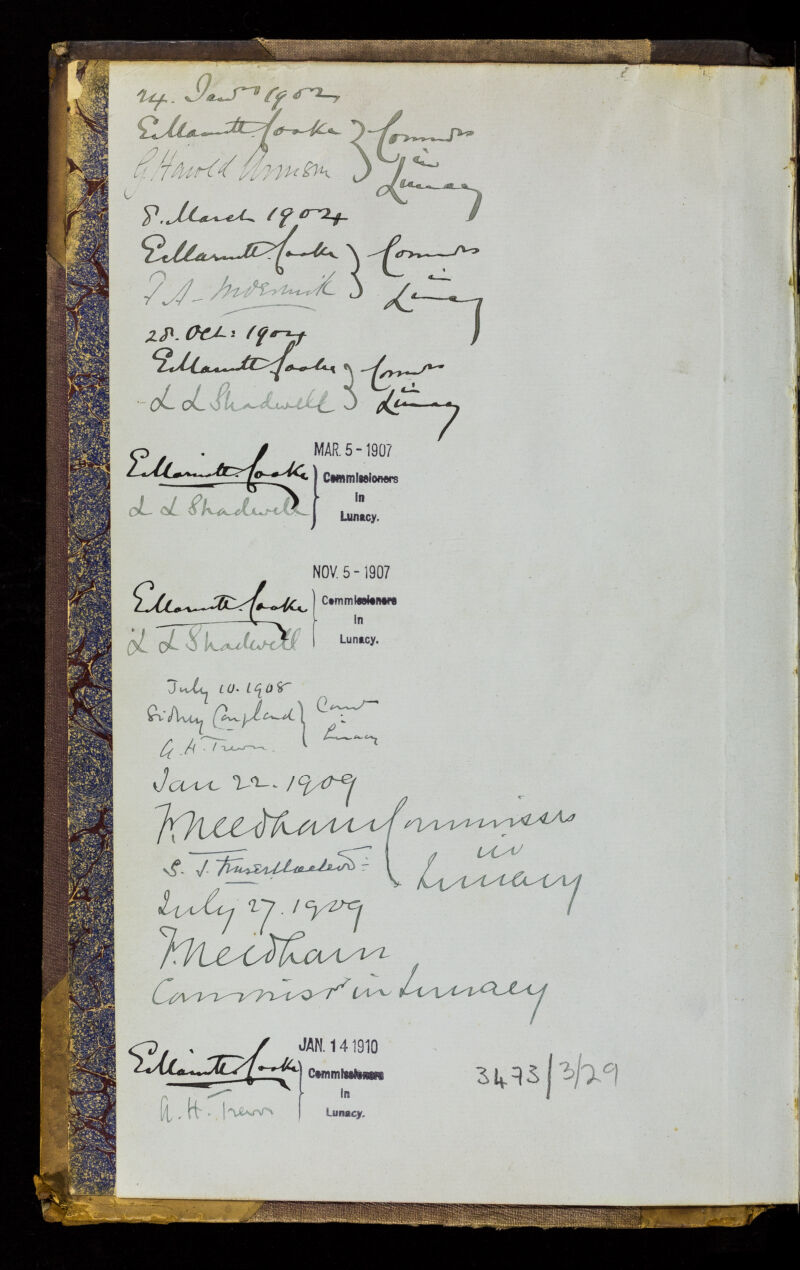 24. Jany 1902
E Marriott Cooke } Commrs
G Harold Urmson } in Lunacy
8. March 1904
E Marriott Cooke } Commrs
in Lunacy
28. Oct: 1904
E Marriott Cooke } Commrs
L L Shadwell } in Lunacy
MAR. 5 - 1907
E Marriott Cooke } Commissioners
in
L L Shadwell } Lunacy.
NOV. 5 - 1907
E Marriott Cooke } Commissioners
in
L L Shadwell } Lunacy.
July 10. 1908
Sidney Coupland } Comrs
in
A. H. Trevor. } Lunacy
Jan 22. 1909
F. Needham } Commissrs
in
S. J. Fraser Macleod } Lunacy
July 27. 1909
F. Needham
Commissr in Lunacy
JAN. 14 1910
E Marriott Cooke } Commissioners
in
A. H. Trevor } Lunacy.
3473/3/29